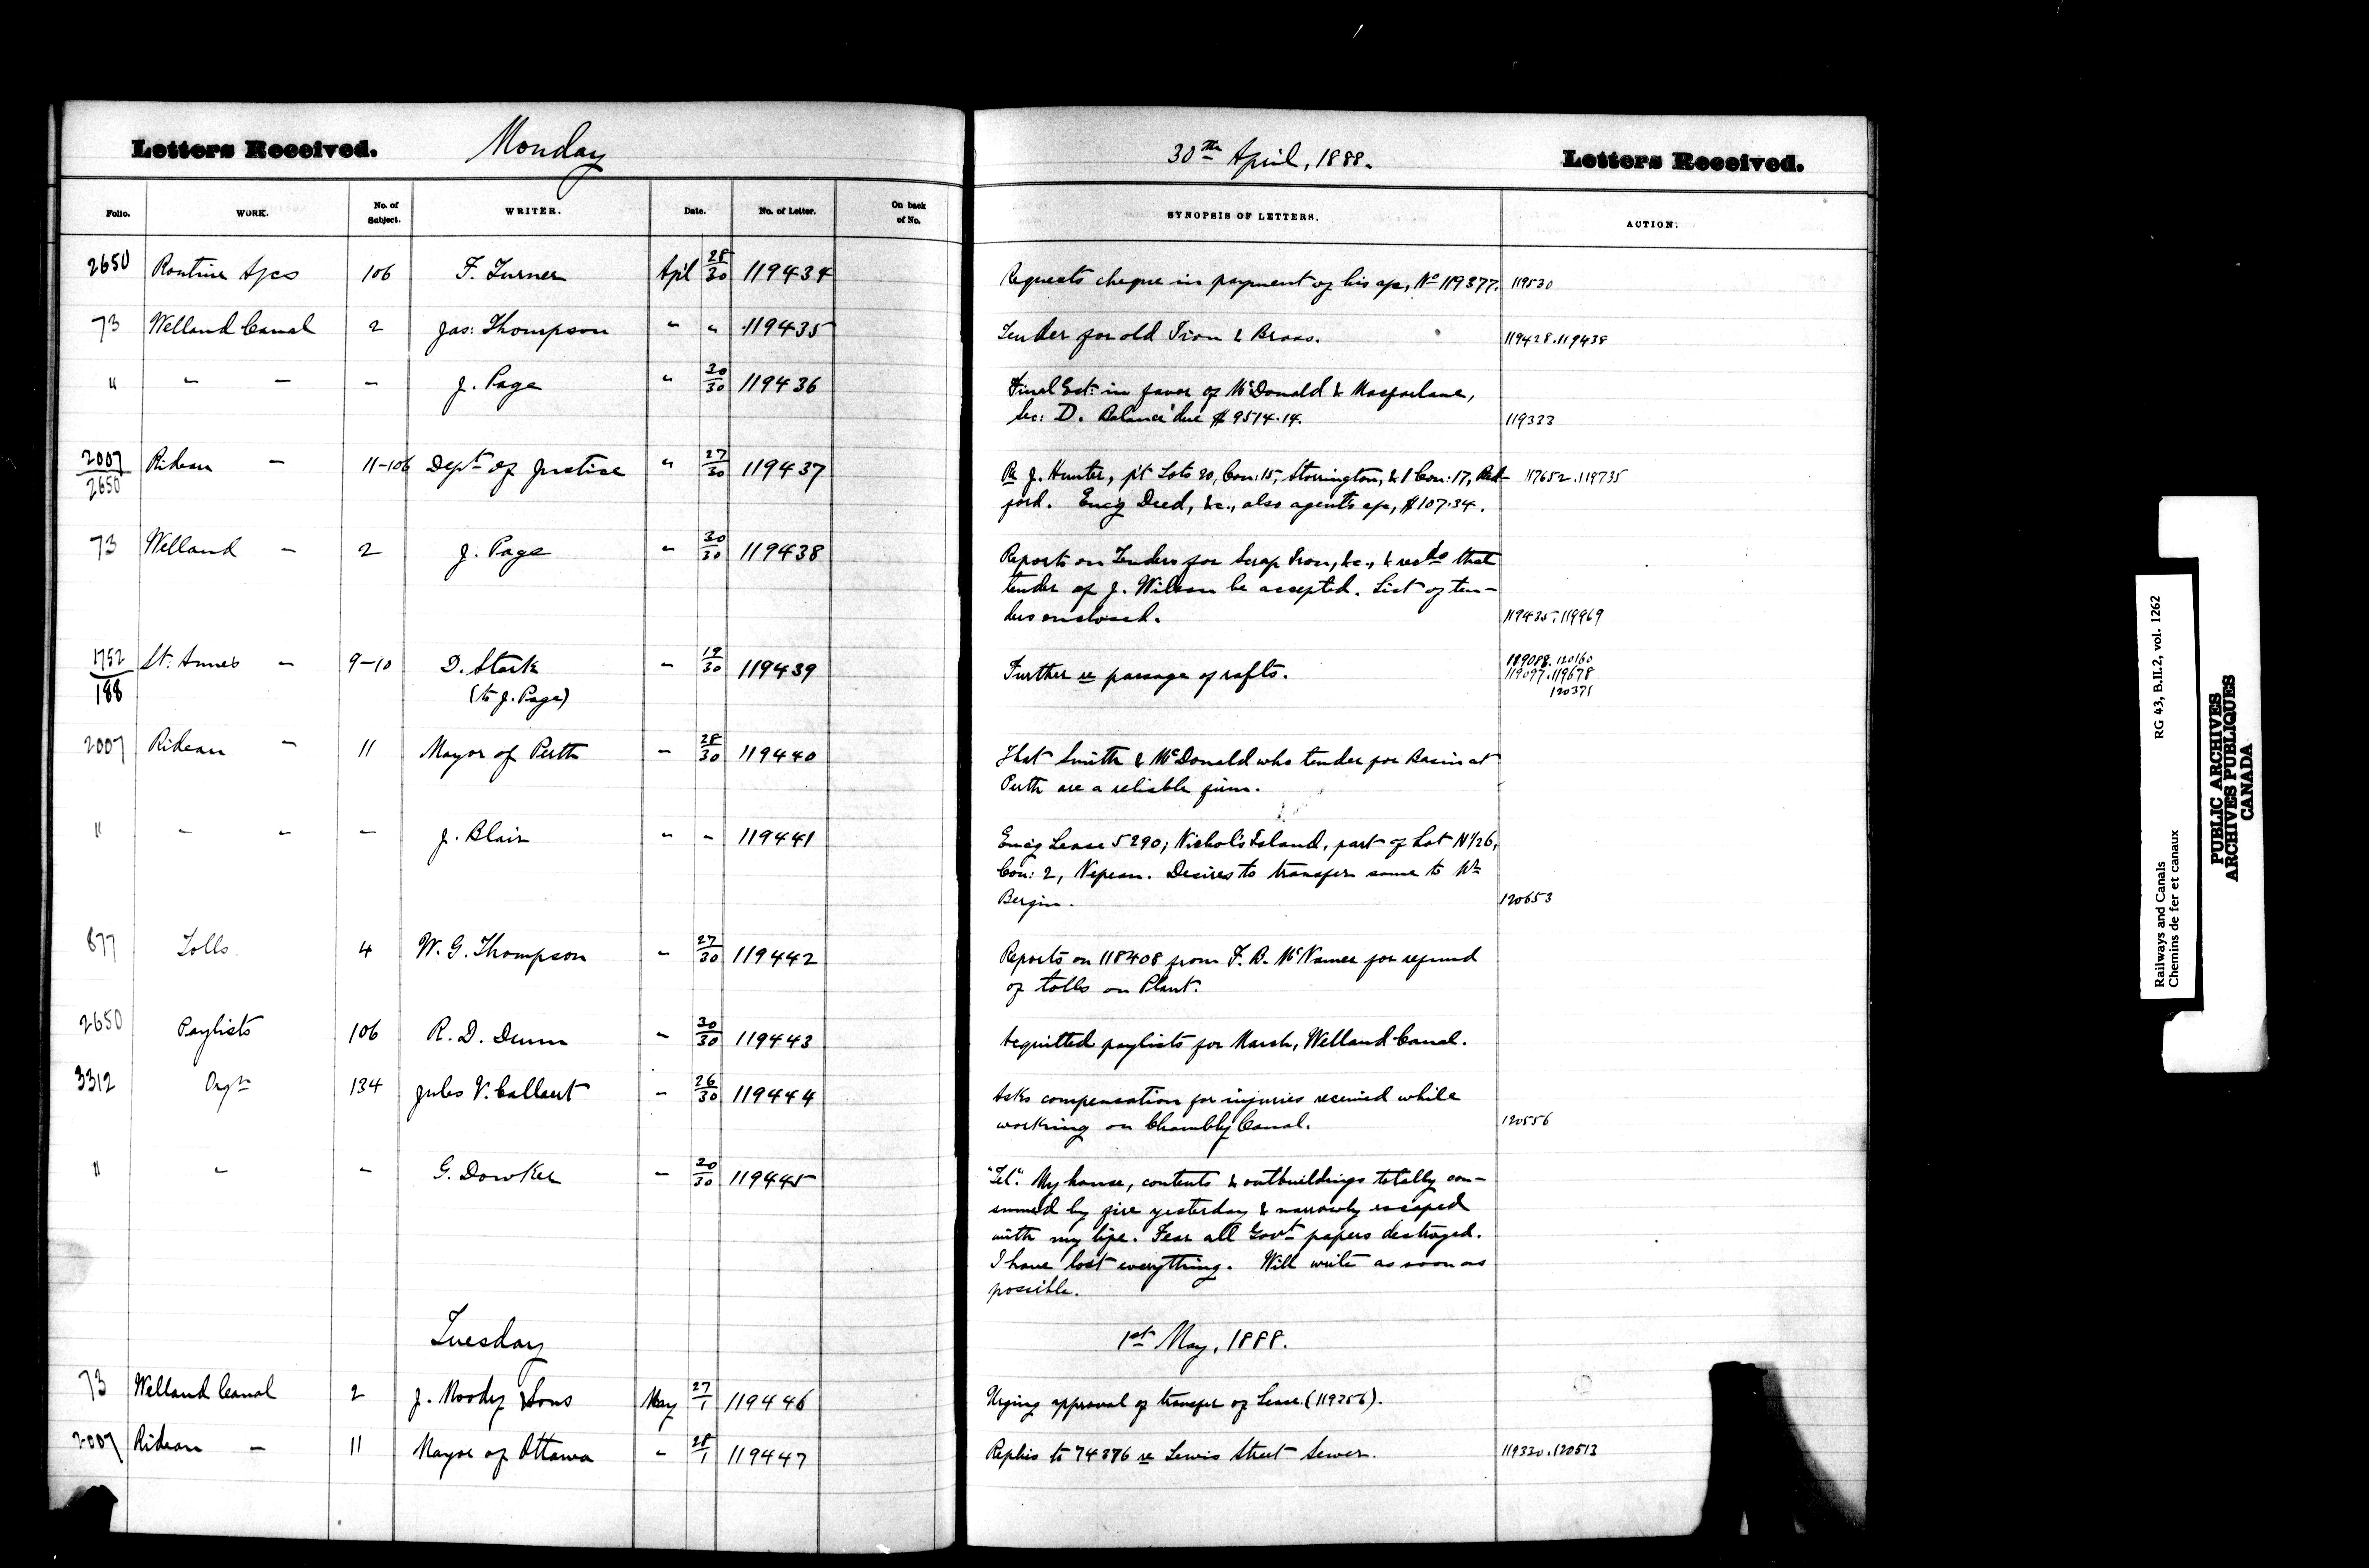 Letters Received. Monday 30th April, 1888. Letters Received.
Folio. WORK. No. of Subject. WRITER. Date. No. of Letter. On back of No. SYNOPSIS OF LETTERS. ACTION.
2650 Routine A/cs 106 F. Turner Apl 28/30 119434 Requests cheque in payment of his a/c, No 119377. 119530
73 Welland Canal 2 Jas: Thompson " " 119435 Tender for old Iron & Brass. 119428.119438
" " - - J. Page " 30/30 119436 Final Est: in favor of McDonald & Macfarlane,
Sec: D. Balance due $9514.14. 119333
2007/2650 Rideau - 11-106 Dept of Justice " 27/30 119437 Re J. Hunter, pt Lots 20, Con: 15, Storrington, & 1 Con: 17, Bed- 117652.119735
ford. Enc'g Deed, &c., also agents a/c, $107.34.
73 Welland - 2 J. Page " 30/30 119438 Reports on Tenders for Scrap Iron, &c., & recds that
tender of J. Wilson be accepted. List of ten-
ders enclosed. 119435.119969
1752/188 St: Annes - 9-10 D. Stark - 19/30 119439 Further re passage of rafts. 119088.120160
119097.119678
(to J. Page) 120371
2007 Rideau - 11 Mayor of Perth - 28/30 119440 That Smith & McDonald who tender for Basin at
Perth are a reliable firm.
" - - - J. Blair - - 119441 Enc'g Lease 5290; Nichols Island, part of Lot N1/26,
Con: 2, Nepean. Desires to transfer same to Wm
Bergin. 120653
877 Tolls 4 W. G. Thompson - 27/30 119442 Reports on 118408 from F. B. McNamee for refund
of tolls on Plant.
2650 Paylists 106 R. D. Dunn - 30/30 119443 Acquitted paylists for March, Welland Canal.
3312 Orgn 134 Jules V. Callaut - 26/30 119444 Asks compensation for injuries received while
working on Chambly Canal. 120556
" - - G. Dowker - 30/30 119445 "Tel". My house, contents & outbuildings totally con-
sumed by fire yesterday & narrowly escaped
with my life. Fear all Govt papers destroyed.
I have lost everything. Will write as soon as
possible.
Tuesday 1st May, 1888.
73 Welland Canal 2 J. Moody & Sons May 27/1 119446 Urging approval of transfer of Lease (119256).
2007 Rideau - 11 Mayor of Ottawa " 28/1 119447 Replies to 74376 re Lewis Street Sewer. 119330.120513
Railways and Canals RG 43, B.II.2, vol. 1262
Chemins de fer et canaux
PUBLIC ARCHIVES
ARCHIVES PUBLIQUES
CANADA